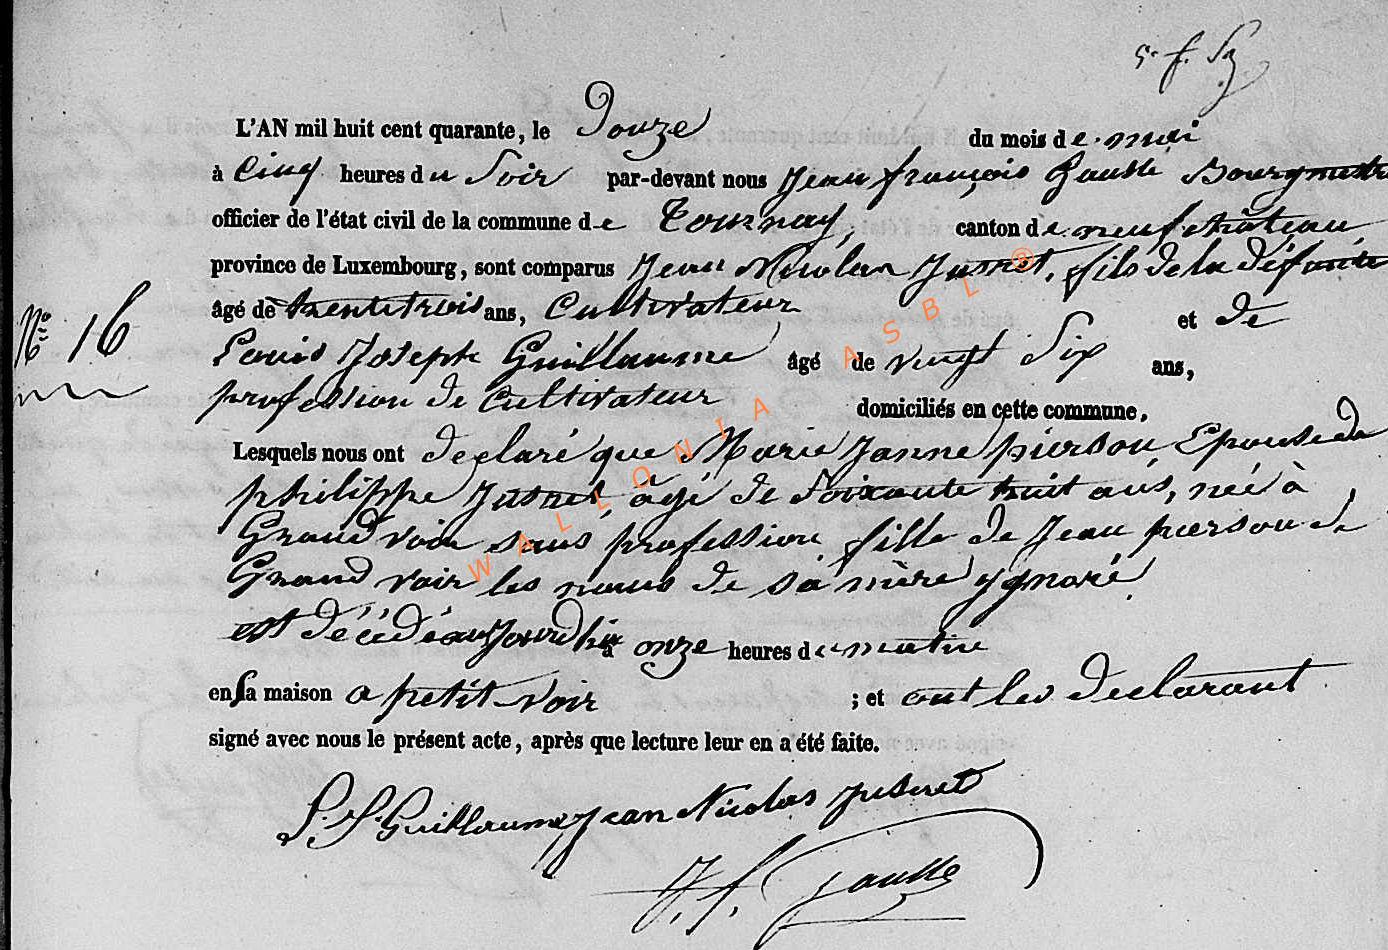 L'AN mil huit cent quarante, le Douze du mois de mai
à Cinq heures du Soir par-devant nous Jean françois Gausse Bourgmettre
officier de l'état civil de la commune de Tournay, canton de neufchâteau
province de Luxembourg, sont comparus Jean Nicolas Jusnet, fils de la défunte
N° 16
âgé de trente trois ans, Cultivateur et de
Louis Joseph Guillaume âgé de vingt Six ans,
profession de Cultivateur domiciliés en cette commune.
Lesquels nous ont declaré que Marie Janne pierson Epouse de
philippe Jusnet, âgé de Soixante huit ans, née à
Grand voir sans profession fille de Jean pierson de
Grand voir les noms de sa mère ygnoré
est décédé aujourdhui à onze heures du matin
en sa maison a petit voir ; et ont les declarant
signé avec nous le présent acte, après que lecture leur en a été faite.
L. J. Guillaume Jean Nicolas Jusnet
J. f. Gausse
WALLONIA ASBL ®